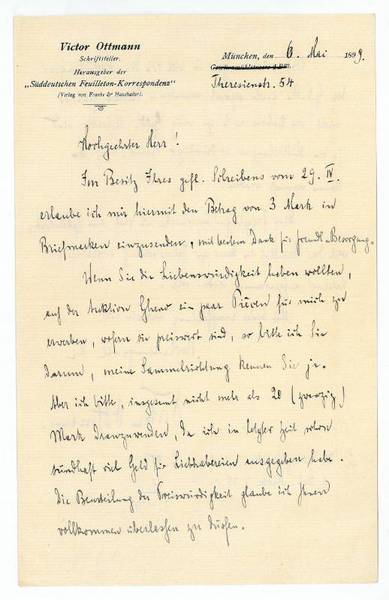 Victor Ottmann
Schriftsteller.
Herausgeber der
„Süddeutschen Feuilleton-Korrespondenz"
(Verlag von Franks & Haushalter).
München, den 6. Mai 1899.
Theresienstr. 54
Hochgeehrter Herr!
Im Besitz Ihres gefl. Schreibens vom 29. IV.
erlaube ich mir hiermit den Betrag von 3 Mark in
Briefmarken einzusenden, mit bestem Dank für freundl. Besorgung.
Wenn Sie die Liebenswürdigkeit haben wollten,
auf der Auktion ein paar Piècen für mich zu
erwerben, wofern sie preiswert sind, so bitte ich Sie
darum, meine Sammelrichtung kennen Sie ja.
Aber ich bitte, insgesamt nicht mehr als 20 (zwanzig)
Mark dranzuwenden, da ich in letzter Zeit schon
sündhaft viel Geld für Liebhabereien ausgegeben habe.
Die Beurteilung der Preiswürdigkeit glaube ich Ihnen
vollkommen überlassen zu dürfen.